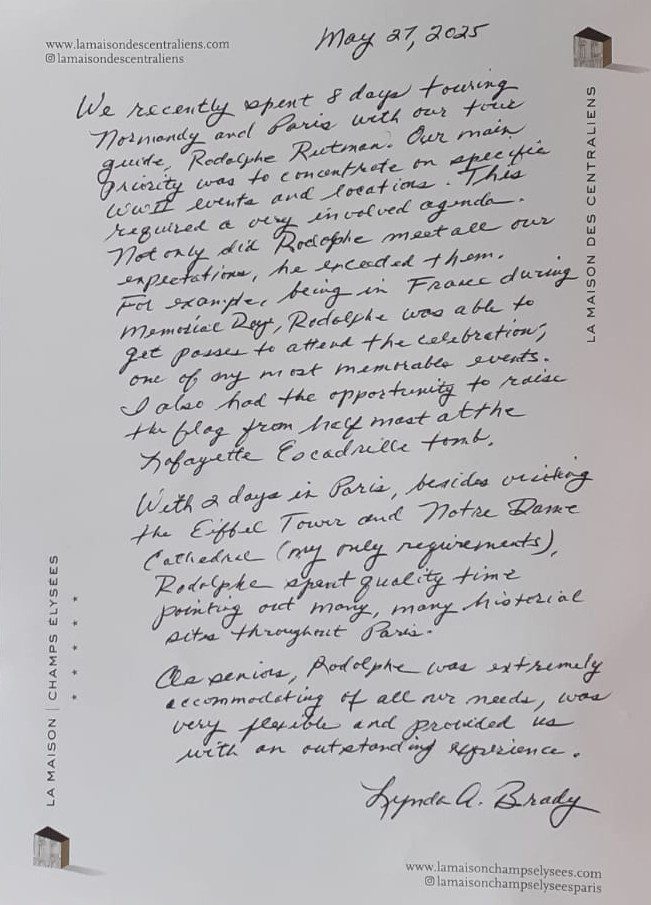 www.lamaisondescentraliens.com
lamaisondescentraliens
May 27, 2025
LA MAISON DES CENTRALIENS
We recently spent 8 days touring
Normandy and Paris with our tour
guide, Rodolphe Rutman. Our main
priority was to concentrate on specific
WWII events and locations. This
required a very involved agenda.
Not only did Rodolphe meet all our
expectations, he exceeded them.
For example, being in France during
Memorial Day, Rodolphe was able to
get passes to attend the celebration;
one of my most memorable events.
I also had the opportunity to raise
the flag from half mast at the
Lafayette Escadrille tomb.
With 2 days in Paris, besides visiting
the Eiffel Tower and Notre Dame
Cathedral (my only requirements),
Rodolphe spent quality time
pointing out many, many historial
sites throughout Paris.
As seniors, Rodolphe was extremely
accommodating of all our needs, was
very flexible and provided us
with an outstanding experience.
Lynda A. Brady
LA MAISON | CHAMPS ELYSÉES
★ ★ ★ ★ ★
www.lamaisonchampselysees.com
lamaisonchampselyseesparis